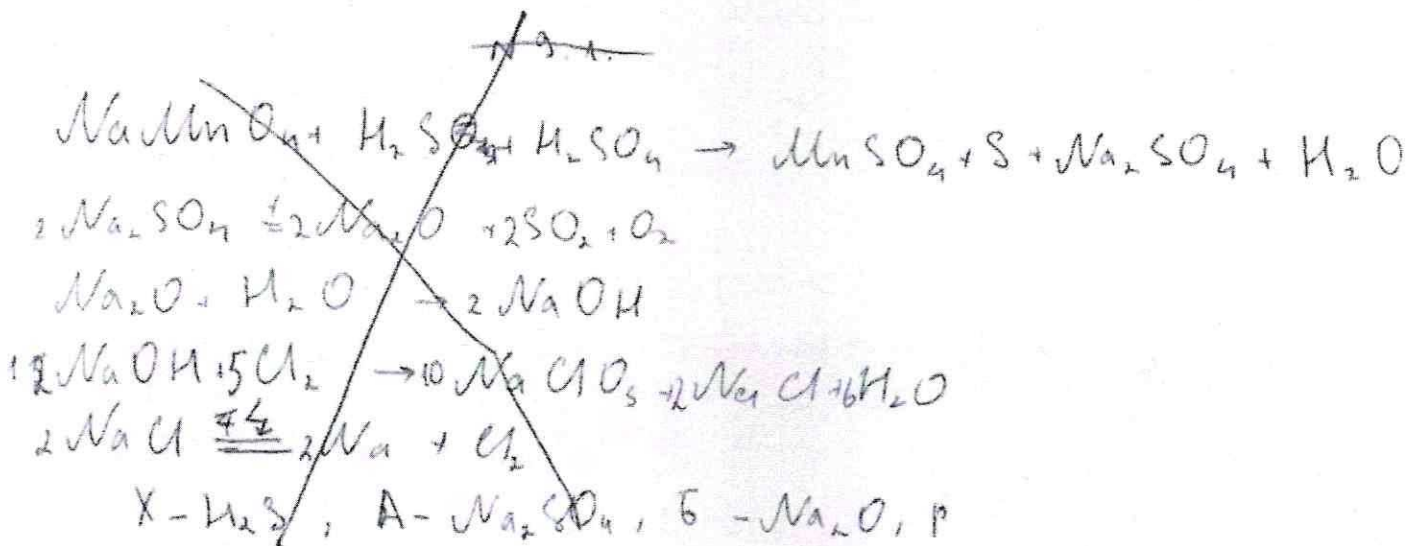 N 9.1.
NaMnO₄ + H₂SO₃ + H₂SO₄ → MnSO₄ + S + Na₂SO₄ + H₂O
2Na₂SO₄ = 2Na₂O + 2SO₂ + O₂
Na₂O + H₂O → 2NaOH
12NaOH + 5Cl₂ → 10NaClO₃ + 2NaCl + 6H₂O
2NaCl = 2Na + Cl₂
X - H₂S, А - Na₂SO₄, Б - Na₂O, р